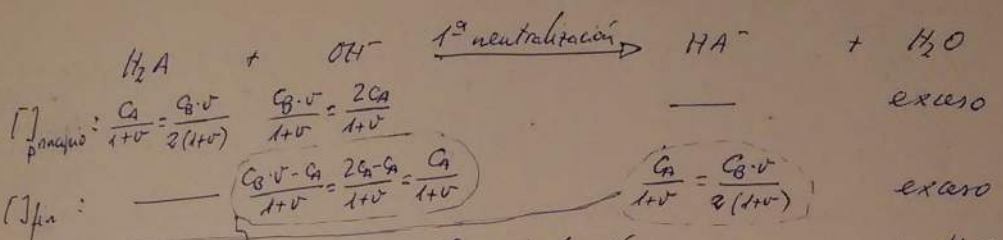 H₂A + OH⁻ 1ª neutralización → HA⁻ + H₂O
[ ]principio: C_A/(1+v) = C_B·v/(2(1+v)) C_B·v/(1+v) = 2C_A/(1+v) — exceso
[ ]fin: — (C_B·v - C_A)/(1+v) = (2C_A - C_A)/(1+v) = C_A/(1+v) C_A/(1+v) = C_B·v/(2(1+v)) exceso